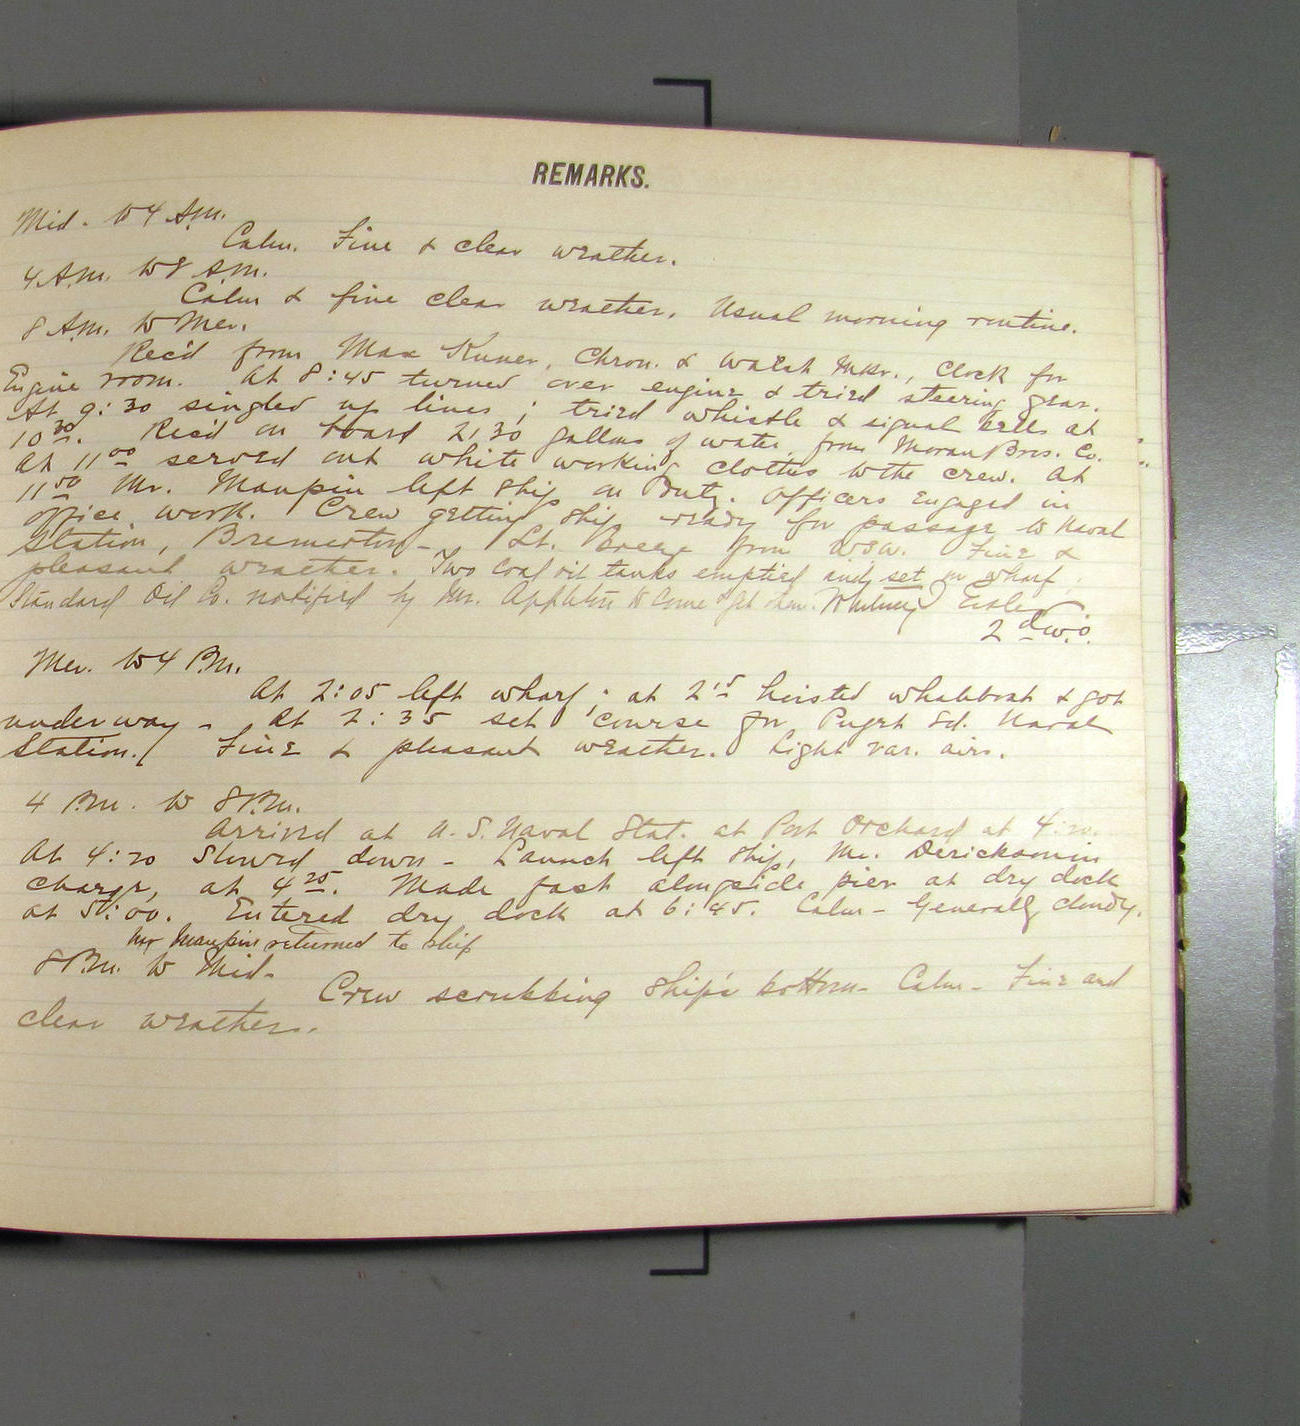 REMARKS.
Mid. to 4 A.M.
Calm. Fine & clear weather.
4 A.M. to 8 A.M.
Calm & fine clear weather. Usual morning routine.
8 A.M. to Mer.
Rec'd from Max Kuner, Chron. & Watch Mkr., Clock for
Engine room. At 8:45 turned over engine & tried steering gear.
At 9:30 singled up lines; tried whistle & signal bells at
10 30. Rec'd on board 2130 gallons of water from Moran Bros. Co.
At 11 00 served out white working clothes to the crew. At
11 50 Mr. Maupin left ship on Duty. Officers engaged in
office work. Crew getting ship ready for passage to Naval
Station, Bremerton - Lt. breeze from WSW. Fine &
pleasant weather. Two coal oil tanks emptied and set on wharf.
Standard Oil Co. notified by Mr. Appleton to come & get them.
2 d W.O.
Mer. to 4 P.M.
At 2:05 left wharf; at 2 15 hoisted whaleboat & got
underway - At 2:35 set course for Puget Sd. Naval
Station. Fine & pleasant weather. Light var. airs.
4 P.M. to 8 P.M.
Arrived at U.S. Naval Stat. at Port Orchard at 4:20.
At 4:20 slowed down - Launch left ship, Mr. Derickson in
charge, at 4 25. Made fast alongside pier at dry dock
at 5:00. Entered dry dock at 6:45. Calm - Generally cloudy.
Mr Maupin returned to ship
8 P.M. to Mid-
Crew scrubbing ship's bottom - Calm - Fine and
clear weather.